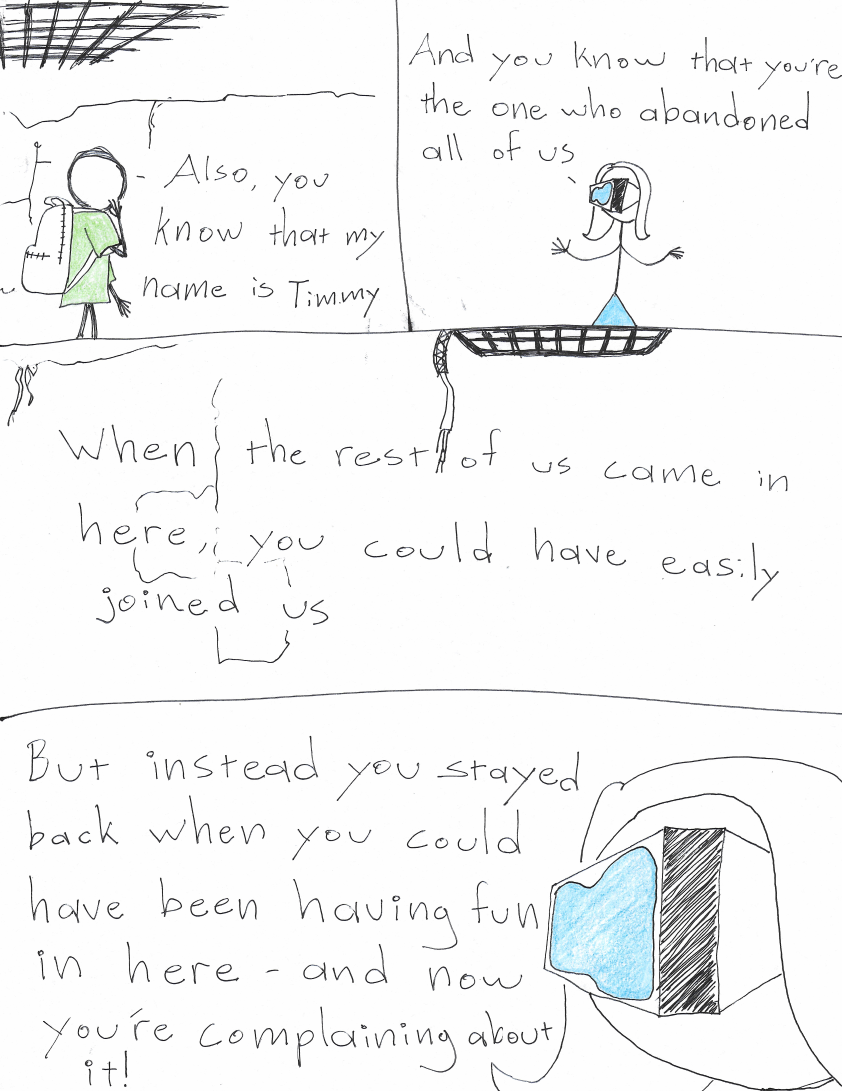 - Also, you
know that my
name is Timmy
And you know that you're
the one who abandoned
all of us
When the rest of us came in
here, you could have easily
joined us
But instead you stayed
back when you could
have been having fun
in here - and now
you're complaining about
it!